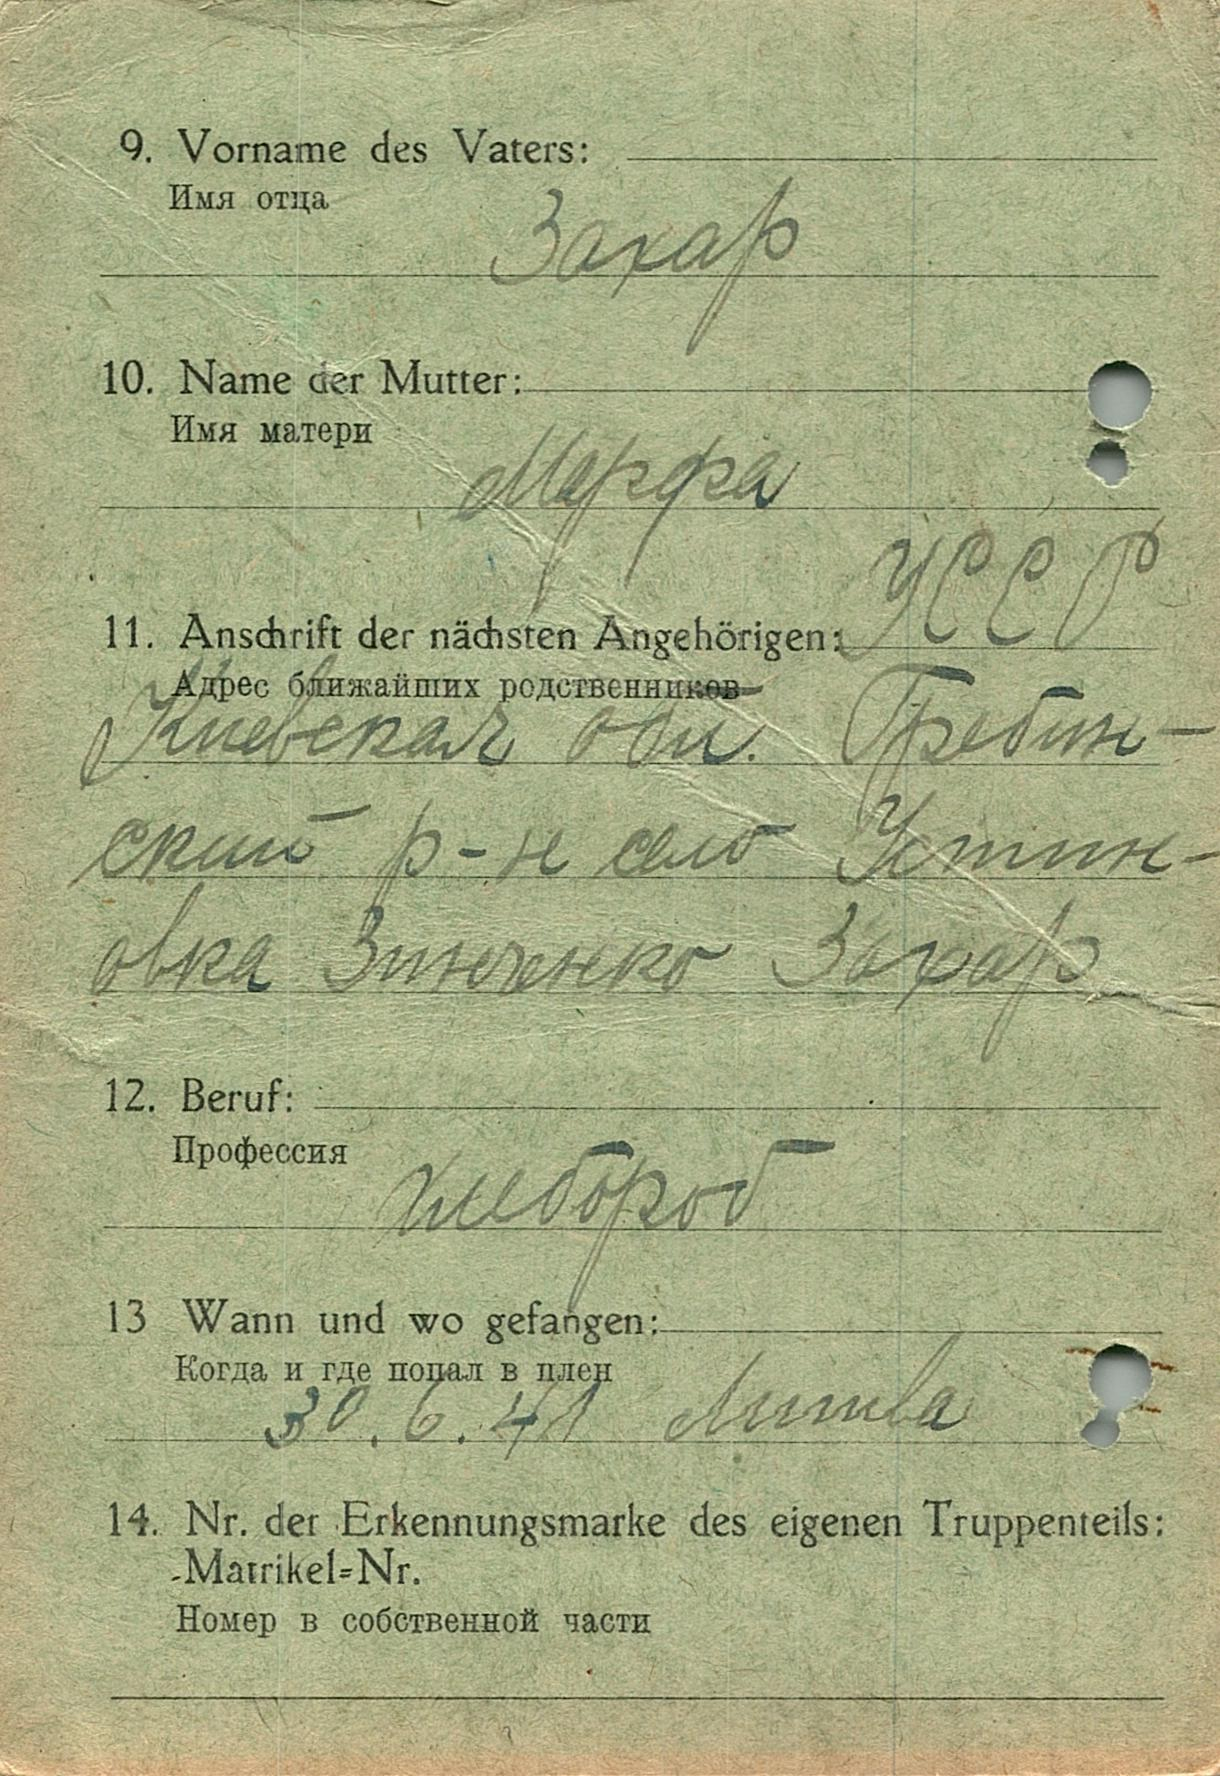 9. Vorname des Vaters:
Имя отца
Захар
10. Name der Mutter:
Имя матери
Марфа
УССР
11. Anschrift der nächsten Angehörigen:
Адрес ближайших родственников
Киевская обл. Гребин-
ский р-н село Устин-
овка Зинченко Захар
12. Beruf:
Профессия
хлебороб
13 Wann und wo gefangen:
Когда и где попал в плен
30.6.41 Литва
14. Nr. der Erkennungsmarke des eigenen Truppenteils:
Matrikel=Nr.
Номер в собственной части